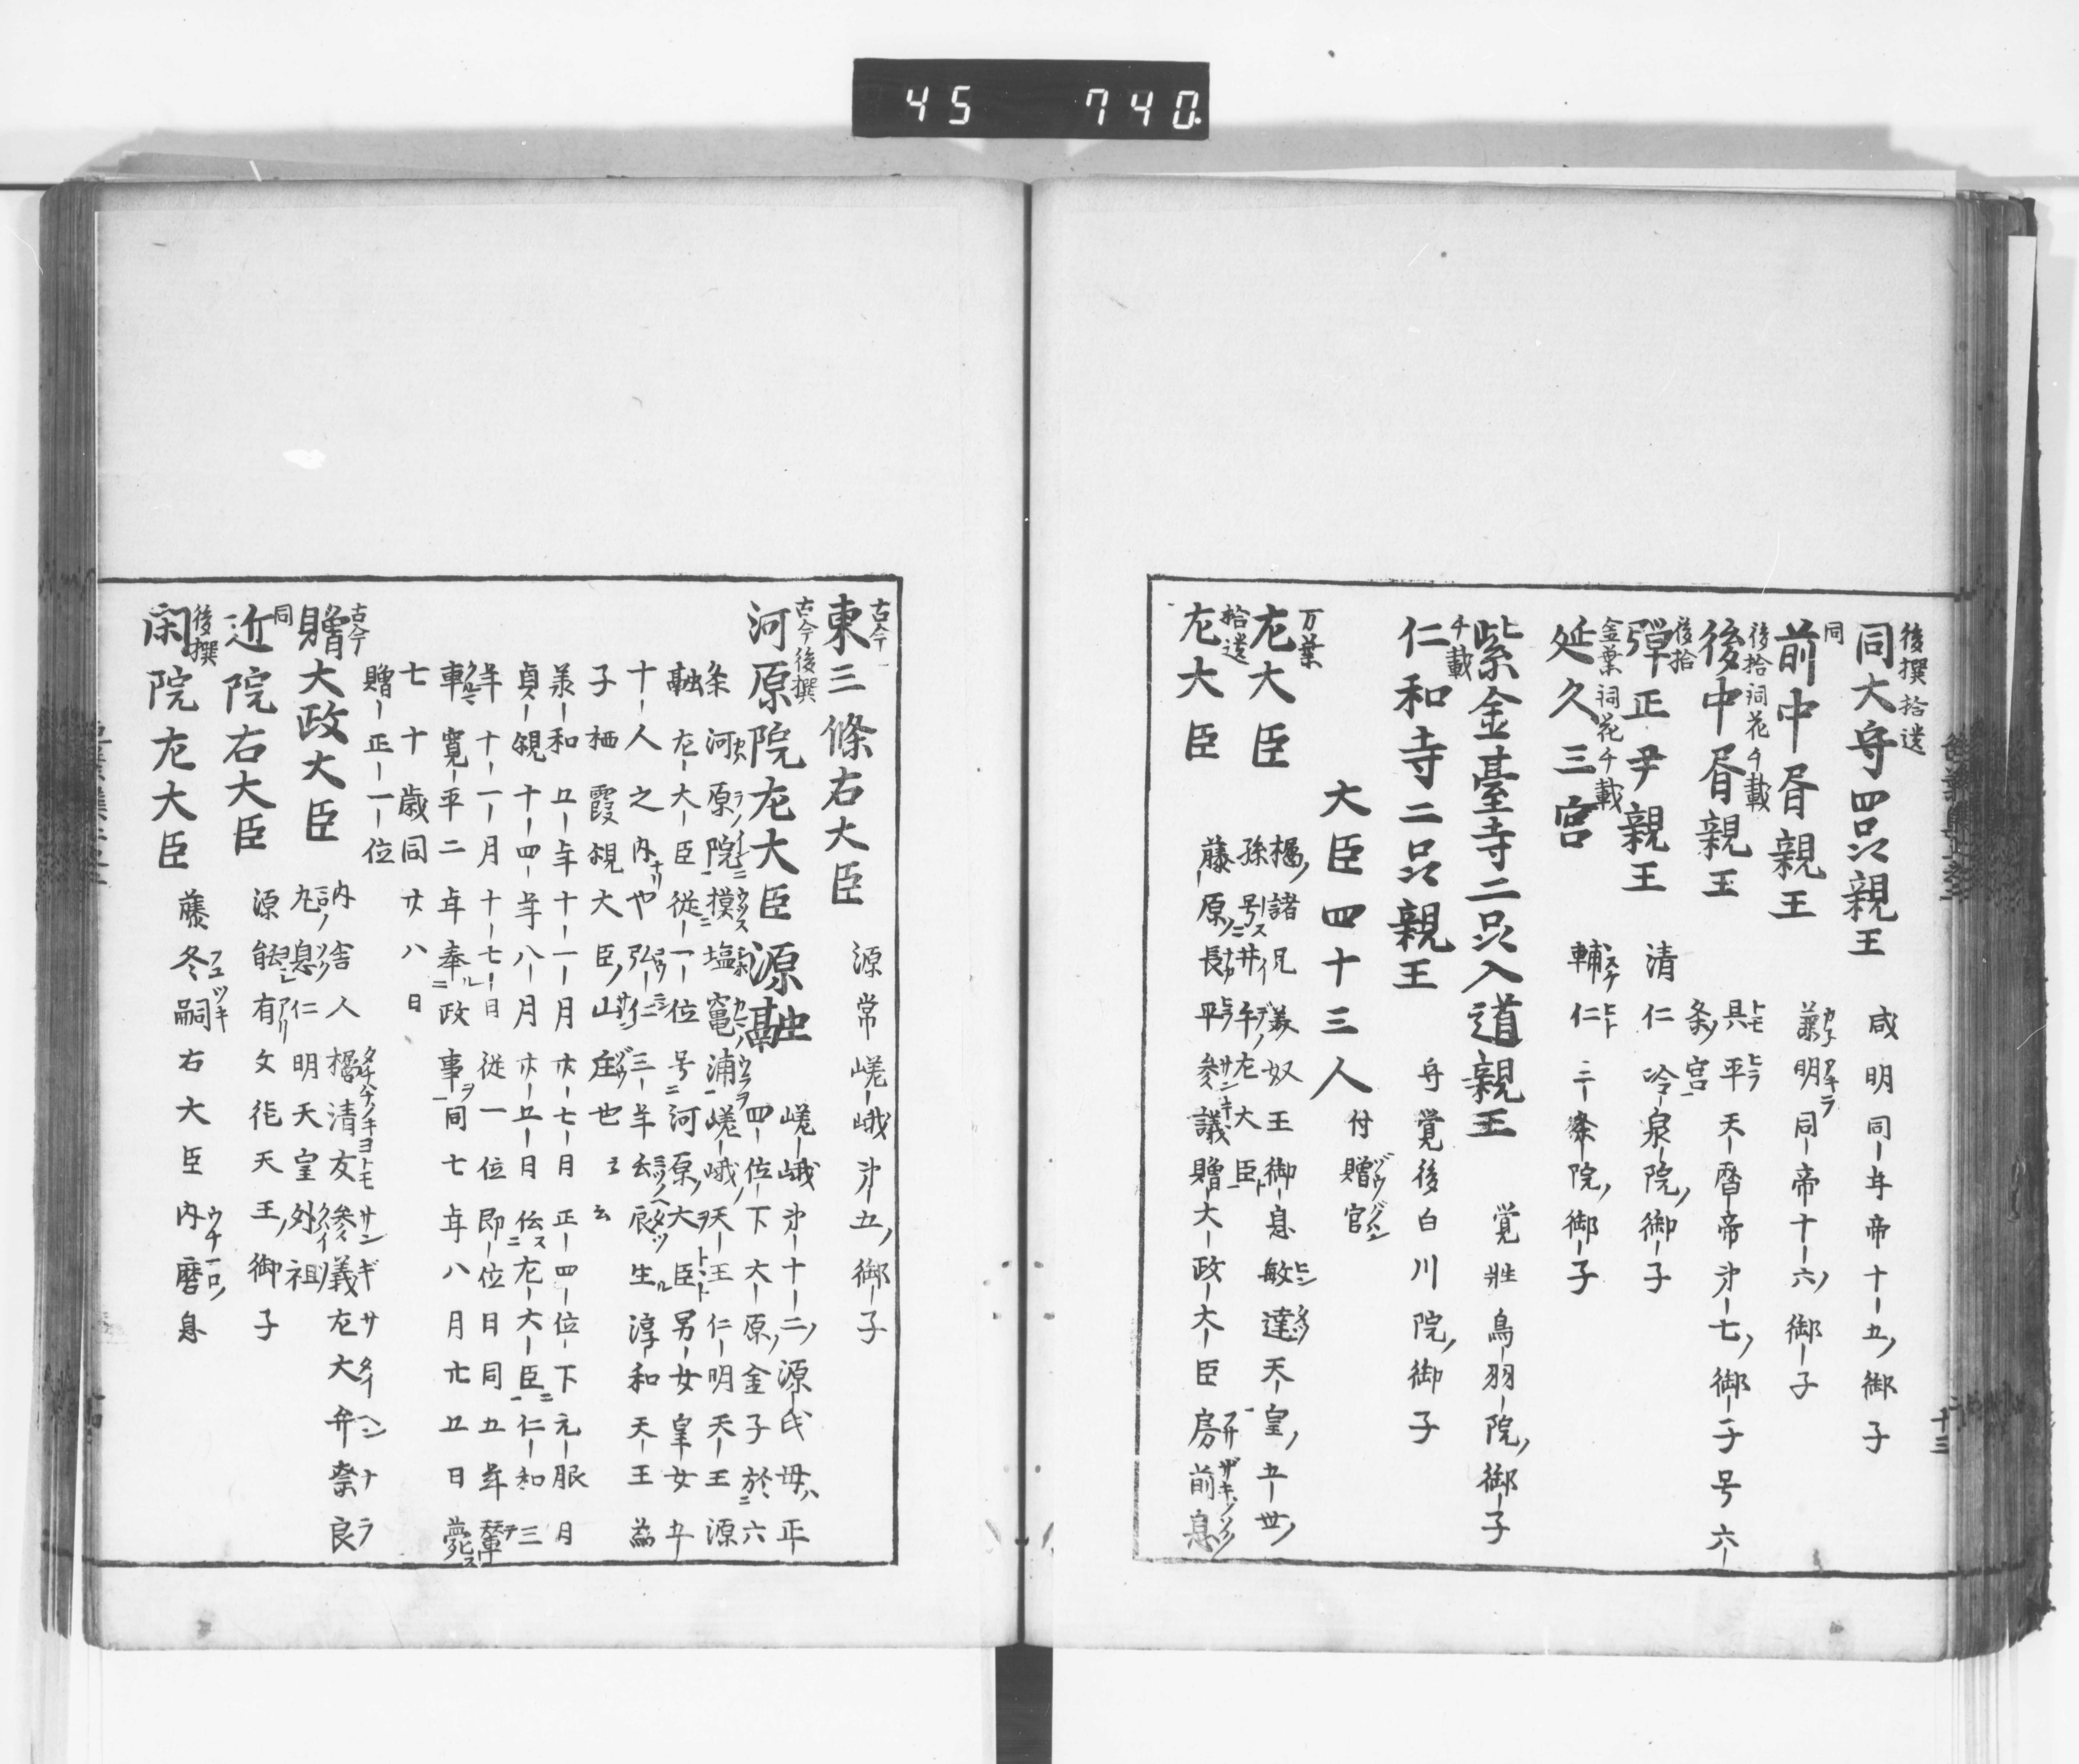 45 740
後撰 拾遺
同大守四品親王 咸明 同年帝十五ノ御子
同
前中唇親王 兼明 同帝十六ノ御子
後拾 詞花 千載
後中唇親王 具平 天暦帝第七ノ御子号六
条ノ宮
後拾
彈正尹親王 清仁 冷泉院ノ御子
金葉 詞花 千載
延久三宮 輔仁 三条院ノ御子
紫金臺寺二品入道親王 覚性 鳥羽院ノ御子
千載
仁和寺二品親王 守覚 後白川院ノ御子
大臣四十三人 付贈官
万葉
左大臣 橘ノ諸兄 美奴王御息敏達天皇ノ五世ノ
孫号井手ノ左大臣
拾遺
左大臣 藤原ノ長平 参議贈大政大臣房前息
十三
古今
東三條右大臣 源常 嵯峨第五ノ御子
古今 後撰
河原院左大臣 源融 嵯峨第十二ノ源氏母ハ正
四位下大原ノ金子於六
条河原ノ院摸塩竈ノ浦嵯峨ノ天王仁明天王源
融左大臣従一位号河原ノ大臣男女皇女五
十人之内ナリ也弘仁三年辰生淳和天王為
子栖霞観大臣ノ山庄也云云
美和五年十一月廿七月正四位下元服月
貞観十四年八月廿五日任左大臣仁和三
年十一月十七日従一位即位日同五年輦
車寛平二年奉政事同七年八月廿五日薨
七十歳同廿八日
贈正一位
古今
贈大政大臣 内舎人橘清友参義左大弁奈良
丸ノ息仁明天皇外祖
同
近院右大臣 源能有 文徳天王ノ御子
後撰
閑院左大臣 藤冬嗣 右大臣内麿息